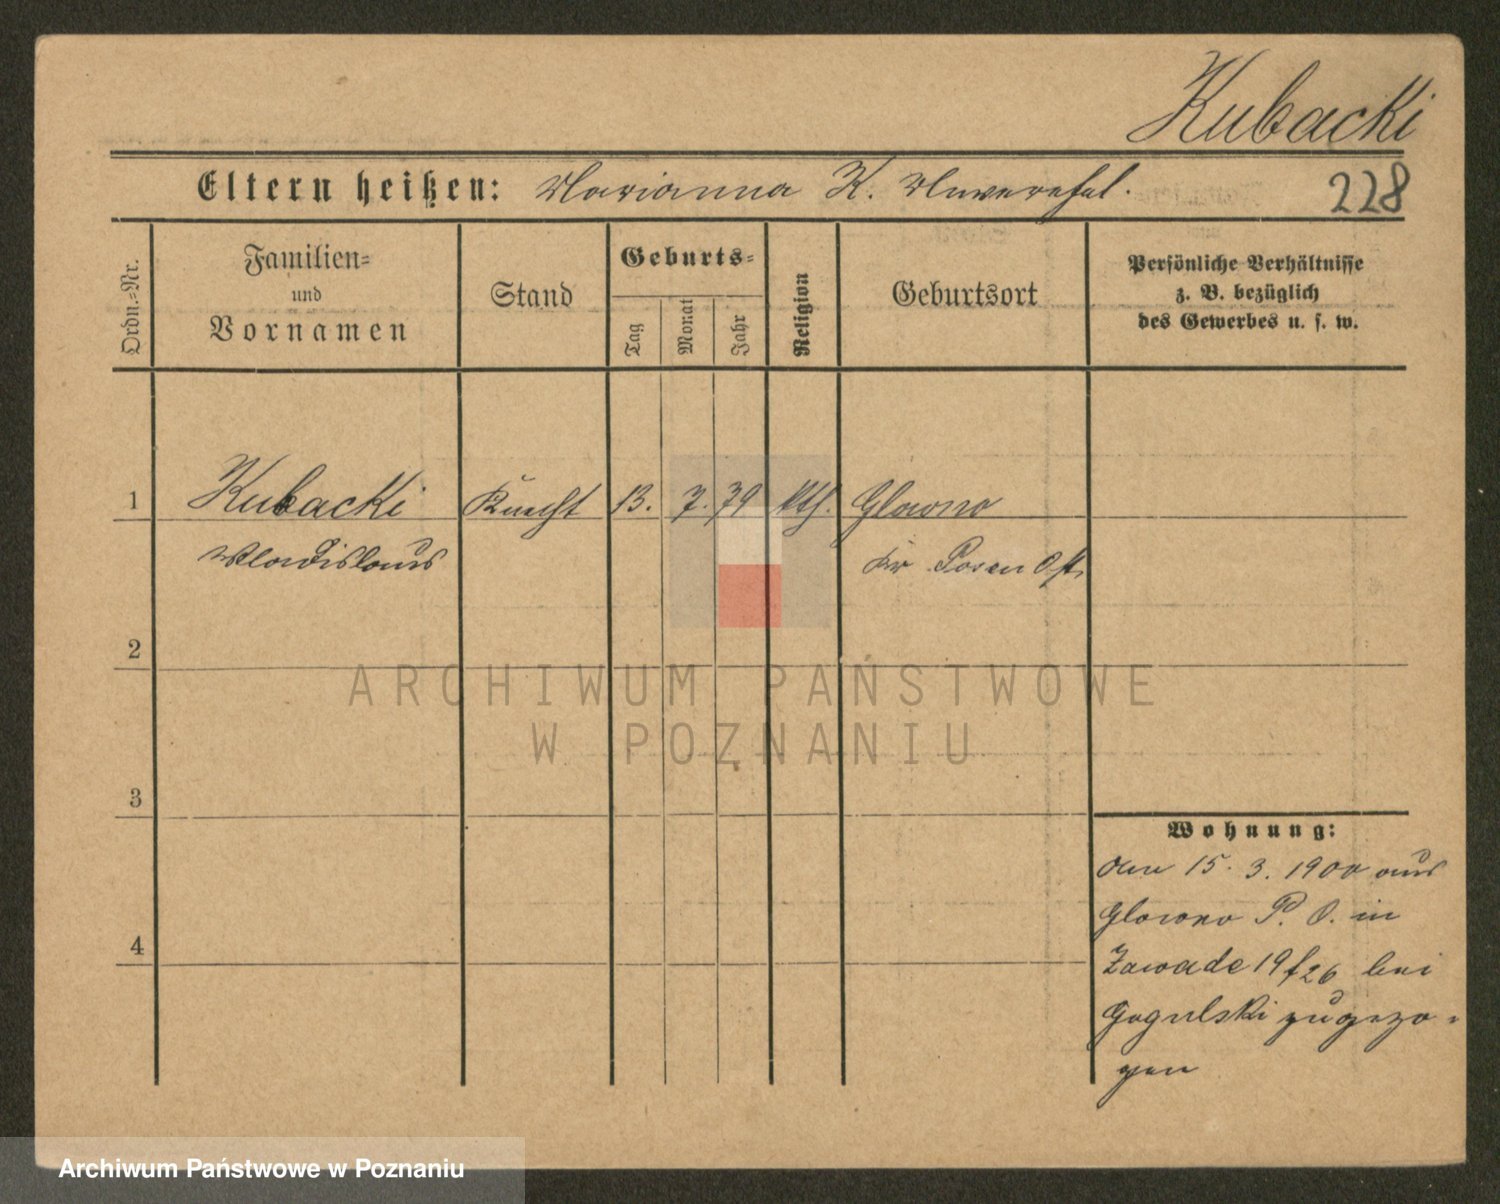 Kubacki
Eltern heißen: Marianna K. Unverehel.
228
Ordn.=Nr.
Familien=
und
Vornamen
Stand
Geburts=
Tag
Monat
Jahr
Religion
Geburtsort
Persönliche Verhältnisse
z. B. bezüglich
des Gewerbes u. s. w.
1
Kubacki Knecht 13. 7. 79 kth. Glowno
Wladislaus Kr Posen Ost
2
ARCHIWUM PAŃSTWOWE
W POZNANIU
3
Wohnung:
den 15. 3. 1900 aus
Glowno P. O. in
4
Zawade 19/26 bei
Gogulski zugezo=
gen
Archiwum Państwowe w Poznaniu